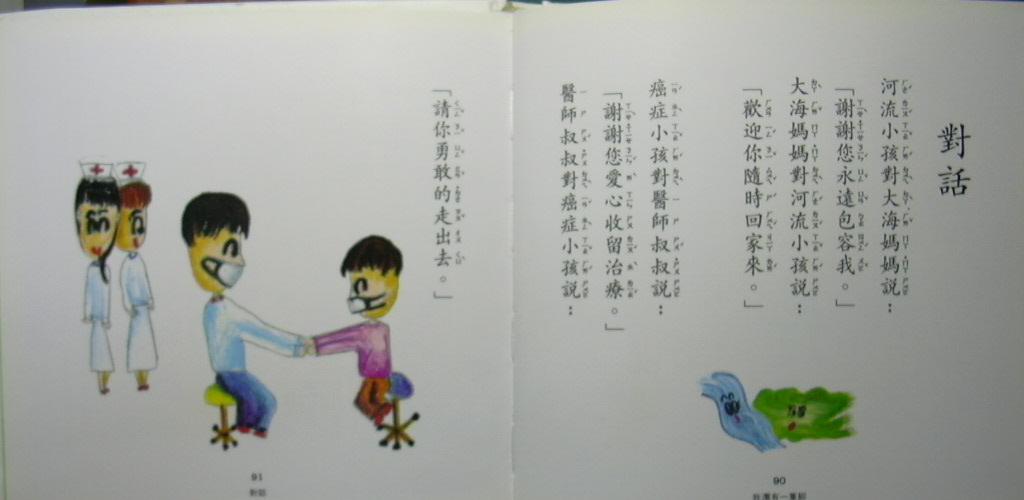 對話
河流小孩對大海媽媽說：
「謝謝您永遠包容我。」
大海媽媽對河流小孩說：
「歡迎你隨時回家來。」
癌症小孩對醫師叔叔說：
「謝謝您愛心收留治療。」
醫師叔叔對癌症小孩說：
90
「請你勇敢的走出去。」
91
對話